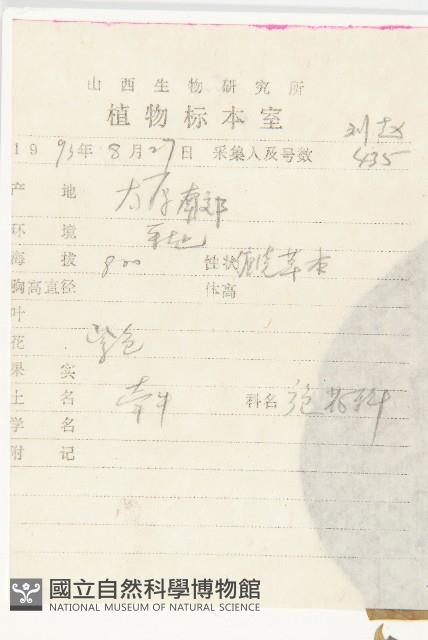 山西生物研究所
植物标本室
刘 赵
1993年8月27日 采集人及号数 435
产地 太原南郊
环境
海拔 800 性状 缠绕草本
胸高直径 体高
叶
花 紫色
果实
土名 牵牛 科名 旋花科
学名
附记
國立自然科學博物館
NATIONAL MUSEUM OF NATURAL SCIENCE